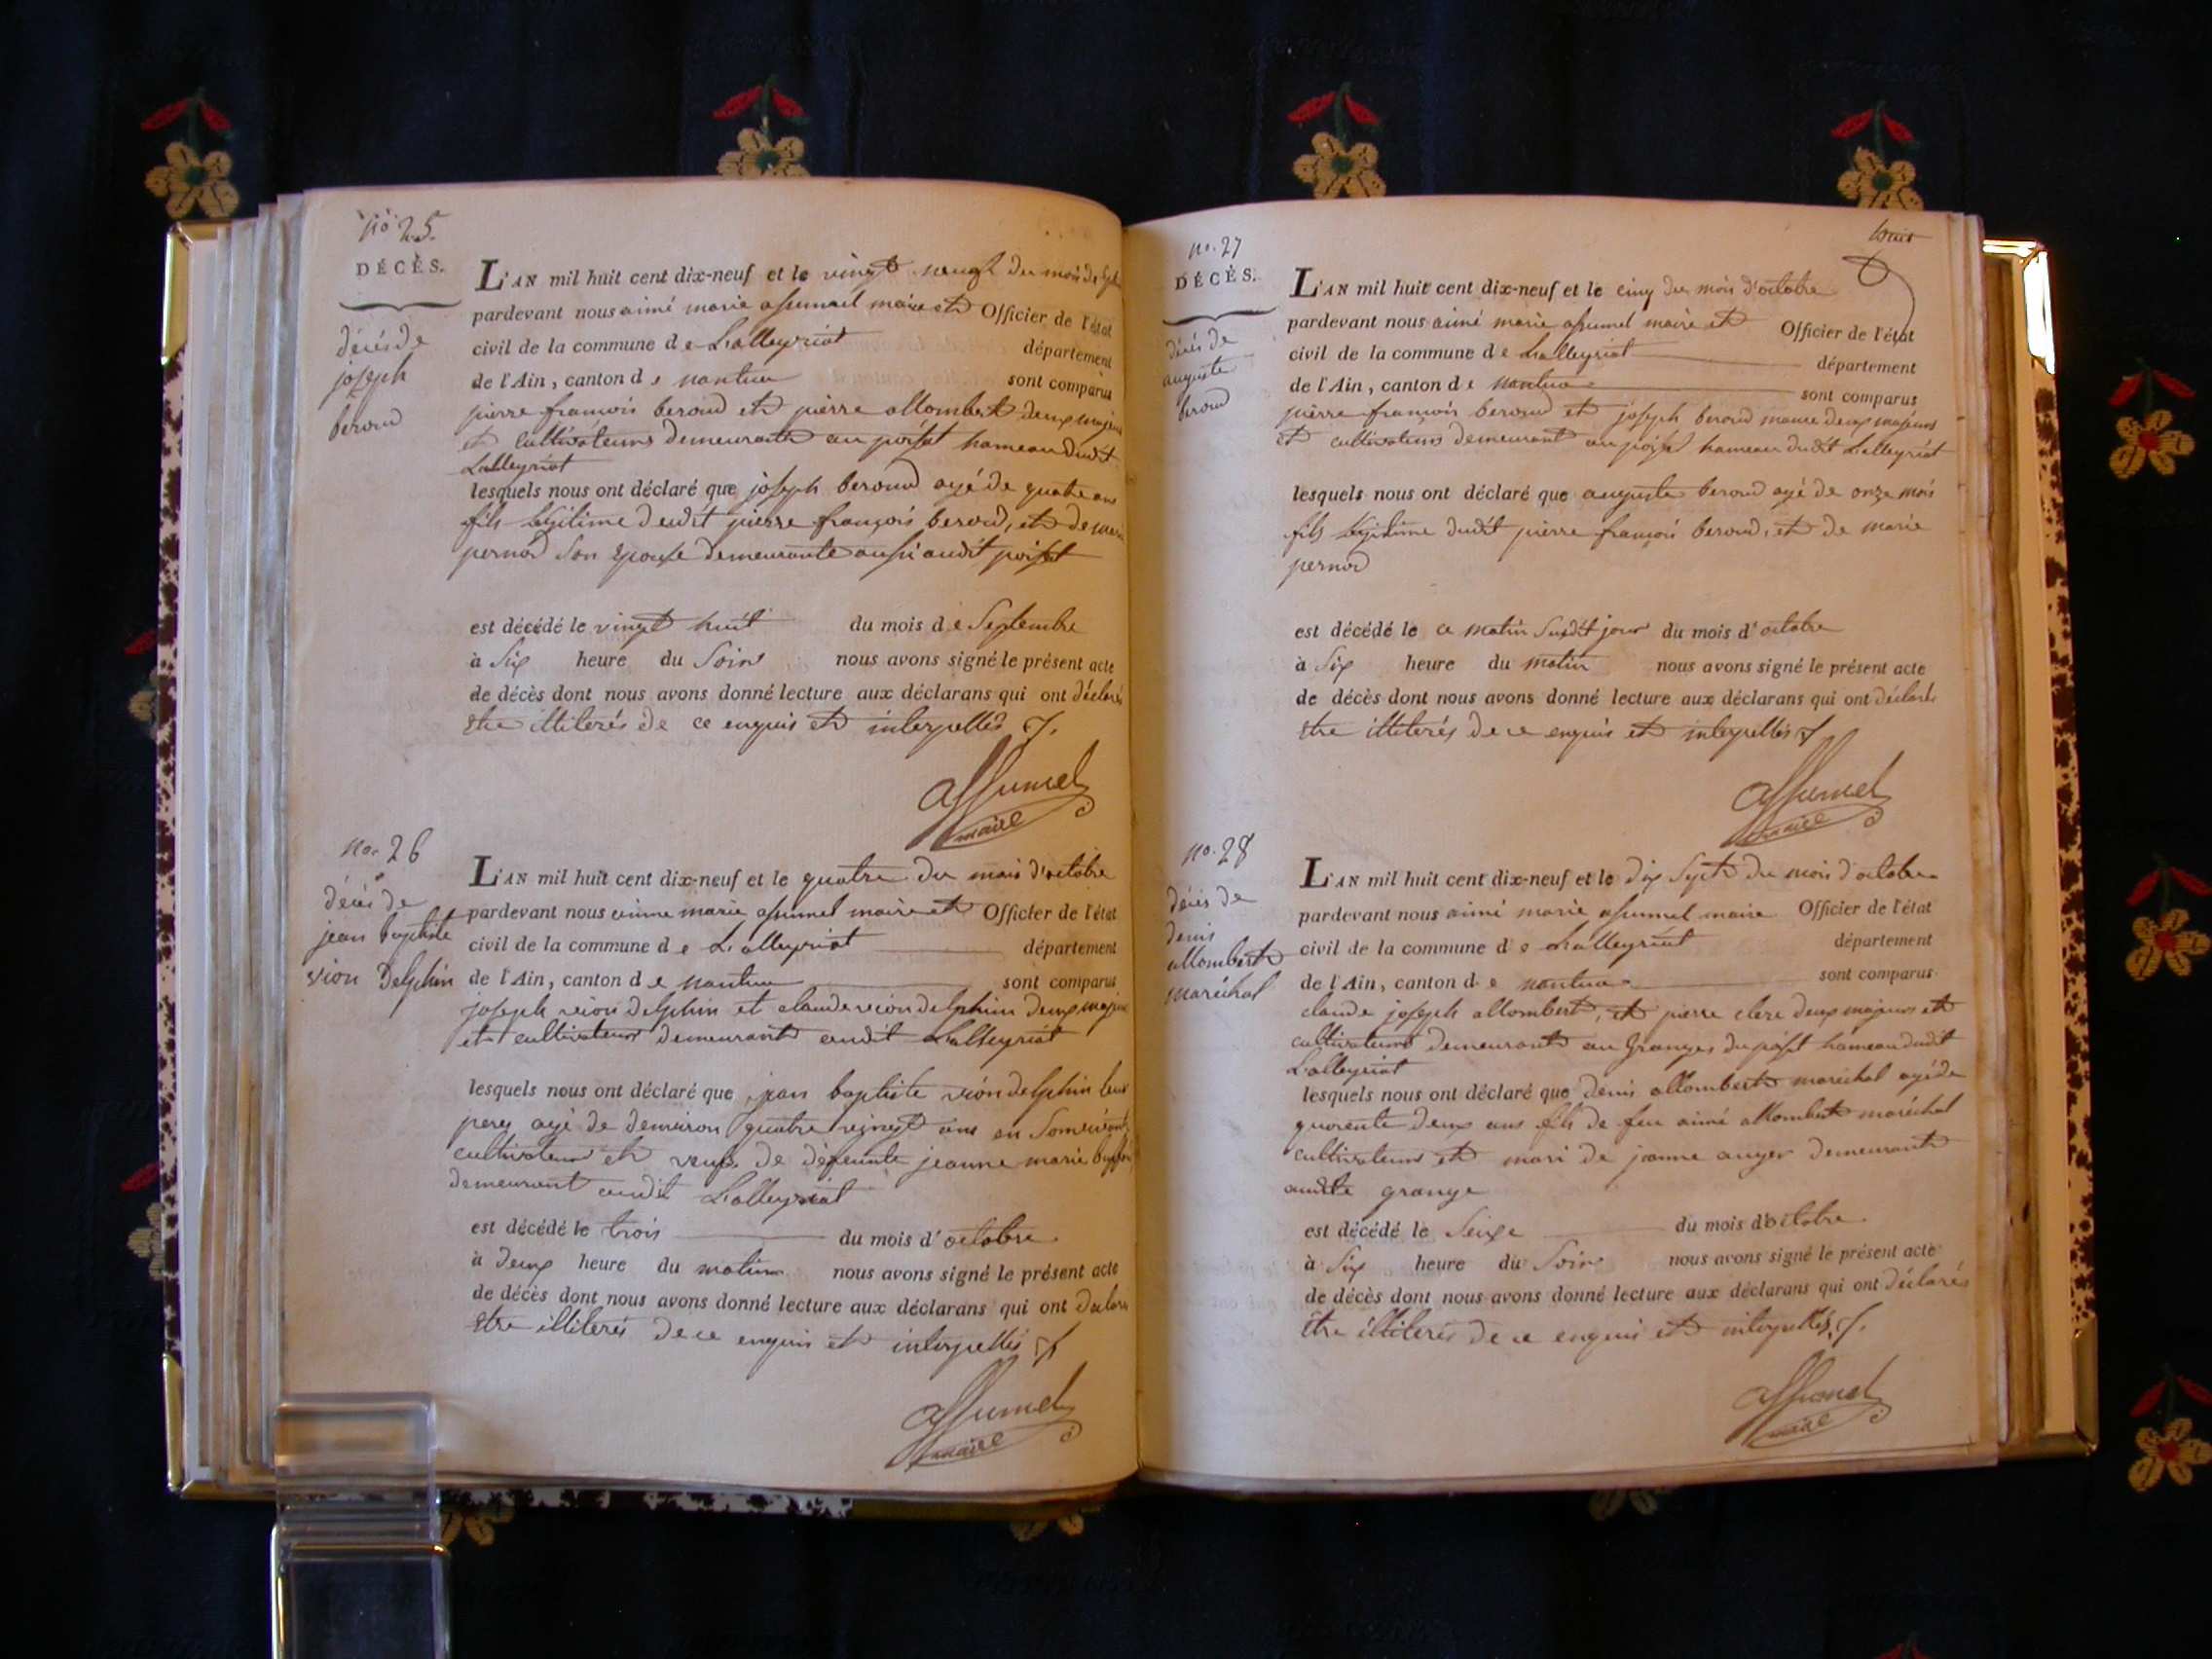 no 25.
DÉCÈS.
décés de
joseph
beroud
L'AN mil huit cent dix-neuf et le vingt neuf du mois de
pardevant nous aimé marie assumel maire et Officier de l'état
civil de la commune de Lalleyriat département
de l'Ain, canton de nantua sont comparus
pierre françois beroud et pierre allombert deux majeurs
et cultivateurs demeurants au poisat hameau dudit
Lalleyriat
lesquels nous ont déclaré que joseph beroud agé de quatre ans
fils legitime dudit pierre françois beroud, et de marie
pernod son epouse demeurante aussi audit poisat
est décédé le vingt huit du mois de Septembre
à Six heure du Soir nous avons signé le présent acte
de décès dont nous avons donné lecture aux déclarans qui ont déclarés
etre illiterés de ce enquis et interpellés
assumel
maire
no. 26
décés de
jean baptiste
vion Delphin
L'AN mil huit cent dix-neuf et le quatre du mois d'octobre
pardevant nous aimé marie assumel maire et Officier de l'état
civil de la commune de Lalleyriat département
de l'Ain, canton de nantua sont comparus
joseph vion delphin et claude vion delphin deux majeurs
et cultivateurs demeurants audit Lalleyriat
lesquels nous ont déclaré que jean baptiste vion delphin leur
pere agé de denviron quatre vingt ans en Son vivant
cultivateur et veuf de défunte jeanne marie
demeurant audit Lalleyriat
est décédé le trois du mois d'octobre
à deux heure du matin nous avons signé le présent acte
de décès dont nous avons donné lecture aux déclarans qui ont declarés
etre illiterés de ce enquis et interpellés
assumel
maire
no. 27
DÉCÈS.
décés de
auguste
beroud
L'AN mil huit cent dix-neuf et le cinq du mois d'octobre
pardevant nous aimé marie assumel maire et Officier de l'état
civil de la commune de Lalleyriat département
de l'Ain, canton de nantua sont comparus
pierre françois beroud et joseph beroud deux majeurs
et cultivateurs demeurant au poisat hameau dudit Lalleyriat
lesquels nous ont déclaré que auguste beroud agé de onze mois
fils legitime dudit pierre françois beroud, et de marie
pernod
est décédé le ce matin Susdit jour du mois d'octobre
à Six heure du matin nous avons signé le présent acte
de décès dont nous avons donné lecture aux déclarans qui ont déclarés
etre illiterés de ce enquis et interpellés
assumel
maire
no. 28
décés de
denis
allombert
maréchal
L'AN mil huit cent dix-neuf et le dix Sept du mois d'octobre
pardevant nous aimé marie assumel maire Officier de l'état
civil de la commune de Lalleyriat département
de l'Ain, canton de nantua sont comparus
claude joseph allombert, et pierre clerc deux majeurs et
cultivateurs demeurants au Granges du poisat hameau dudit
Lalleyriat
lesquels nous ont déclaré que denis allombert maréchal agé de
quarente deux ans fils de feu aimé allombert maréchal
cultivateur et mari de jeanne auger demeurants
audite grange
est décédé le Seize du mois d'octobre
à Six heure du Soir nous avons signé le présent acte
de décès dont nous avons donné lecture aux déclarans qui ont déclarés
etre illiterés de ce enquis et interpellés
assumel
maire